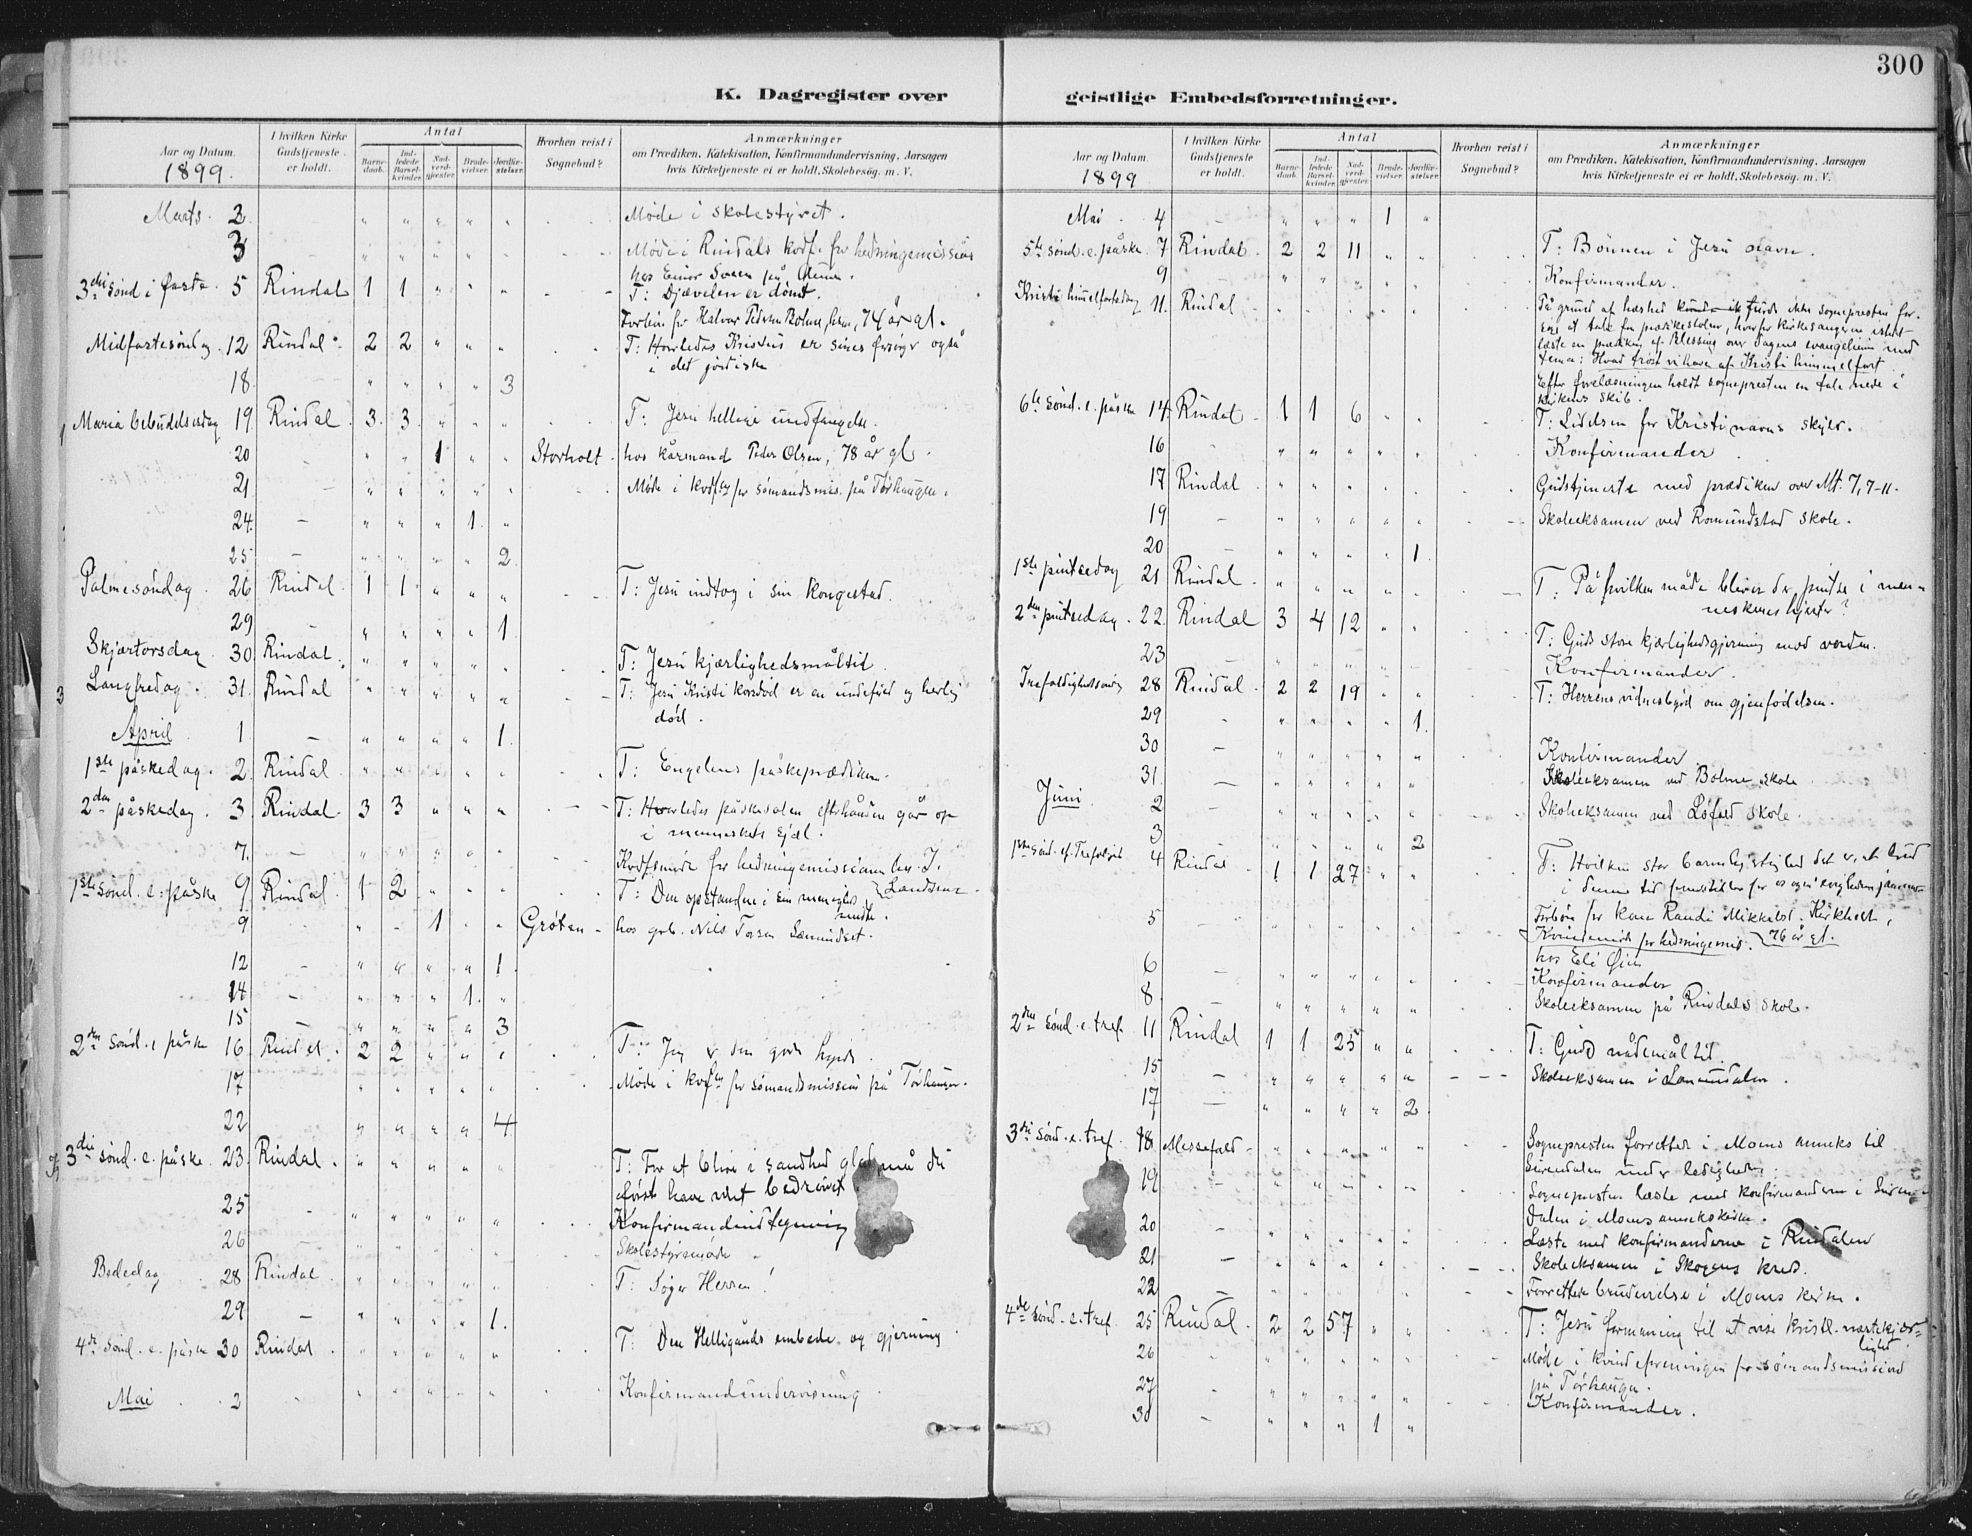 300
K. Dagregister over
geistlige Embedsforretninger.
Aar og Datum.
I hvilken Kirke Gudstjeneste er holdt.
Antal
Barne-daab.
Ind-ledede Barsel-kvinder.
Nad-verd-gjester.
Brude-vielser.
Jordfæ-stelser.
Hvorhen reist i Sognebud?
Anmærkninger
om Prædiken, Katekisation, Konfirmandundervisning, Aarsagen
hvis Kirketjeneste ei er holdt, Skolebesøg. m. V.
1899.
Marts. 2. – " " " " " Møde i skolestyret.
3 " " " " " Møde i Rindals kvdf. for hedningemissionen
hos Einar Sveen på
3die sønd i faste 5 Rindal 1 1 " " " T: Djævelen er dømt.
Forbøn for Halvor Pedersen Bolme, 74 år gl.
Midfastesøndag 12 Rindal 2 2 " " " T: Hvorledes Kristus er sines forsørger også
i det jordiske
18. " " " " 3
Maria bebudelsesdag 19. Rindal 3. 3. " " " T: Jesu hellige undfangelse.
20 – " " 1 " " Storholt hos kårmand Peder Olsen, 78 år gl.
21 – " " " " " Møde i kvdfng for sømandsmis. på Tørhaugen.
24. – " " " 1. "
25 – " " " " 2
Palmesøndag 26 Rindal 1 1 " " " T: Jesu indtog i sin kongestad.
29 – " " " " 1.
Skjærtorsdag 30 Rindal " " " " " T: Jesu kjærlighedsmåltid.
Langfredag. 31. Rindal " " " " " T: Jesu Kristi korsdød er en underfuld og herlig
død.
April 1 – " " " " 1.
1ste påskedag. 2. Rindal " " " " " T: Engelens påskeprædiken.
2den påskedag. 3 Rindal 3 3 " " " T: Hvorledes påskesolen efterhånden går op
i menneskets sjæl.
7. – " " " " " Kvdfsmøde for hedningemissionen hos I. Landsem
1ste sønd. e. påske 9 Rindal 1 2 " " " T: Den opstandne i sin menighed
9 " – 1 " " Grøten – hos grb. Nils Torsen
12 – " " " " 1.
14 – " " " 1. "
15 – " " " " 3
2den sønd. e påske 16 Rindal. 2 2 " " " T: Jeg er den gode hyrde.
17 " " " " " Møde i kvfng for sømandsmission på Tørhaugen.
22 " " " " 4
3die sønd. e. påske. 23. Rindal. " " " " " T: For at blive i sandhed glad må du
først have været bedrøvet
25 – " " " " " Konfirmandindtegning
26 – " " " " " Skolestyremøde.
Bededag 28 Rindal. " " " " " T: Søger Herren!
29 – " " " " 1.
4de sønd. e. påske 30 Rindal. " " " " " T: Den Helligånds embede og gjerning.
Mai 2 – " " " " " Konfirmandundervisning.
Aar og Datum.
I hvilken Kirke Gudstjeneste er holdt.
Antal
Barne-daab.
Ind-ledede Barsel-kvinder.
Nad-verd-gjester.
Brude-vielser.
Jordfæ-stelser.
Hvorhen reist i Sognebud?
Anmærkninger
om Prædiken, Katekisation, Konfirmandundervisning, Aarsagen
hvis Kirketjeneste ei er holdt, Skolebesøg. m. V.
1899
Mai 4 – " " " 1 "
5te sønd. e. påske. 7 Rindal 2 2 11 " " T: Bønnen i Jesu navn.
9 " " " " " Konfirmander.
Kristi himmelfartsdag 11. Rindal " " " " " På grund af hæshed kunde ik turde ikke sognepresten for-
søge at tale fra prædikestolen, hvorfor kirkesangeren istedet
læste en prædiken af Blessing over dagens evangelium med
tema: Hvad trøst vi have af Kristi himmelfart
Efter forelæsningen holdt sognepresten en tale nede i
kirkens skib.
6te sønd. e. påske 14. Rindal 1 1 6 " " T: Lidelsen for Kristi navns skyld.
16 – " " " " " Konfirmander.
17 Rindal " " " " " Gudstjeneste med prædiken over Mt. 7, 7-11.
19 – " " " " " Skoleeksamen ved Romundstad skole.
20 – " " " " 1.
1ste pintsedag 21 Rindal " " " " " T: På hvilken måde bliver der pintse i men-
neskenes hjerte?
2den pintsedag. 22. Rindal 3 4 12 " " T: Guds store kjærlighedsgjerning mod verden.
23 – " " " " " Konfirmander.
Trefoldighedssøndag 28 Rindal 2 2 19 " " T: Herrens vidnesbyrd om gjenfødelsen.
29 – " " " " 1.
30 – " " " " " Konfirmander
31. – " " " " " Skoleeksamen ved Bolme skole
Juni. 2 – " " " " " Skoleeksamen ved Løfald skole.
3 " " " " 2
1ste sønd. ef. Trefoldighed 4 Rindal 1 1 27 " " T: Hvilken stor barmhjertighed det er, at Gud
i denne tid fremstiller for os evighedens jammer
5 – " " " " " Forbøn for kone Randi Mikkelsd. Kirkholt, 76 år gl.
Kvindemøde for hedningemis.
hos Eli Øien
6 – " " " " " Konfirmander
8. – " " " " " Skoleeksamen på Rindals skole.
2den sønd. e. tref. 11 Rindal 1 1 25 " " T: Guds nådemåltid.
15 – " " " " " Skoleeksamen i
17 – " " " " 2
3die sønd. e. tref. 18. Messefald " " " " " Sognepresten forretter i Moens anneks til
Surendalen under ledigheden.
19 – " " " " " Sognepresten læste med konfirmanderne i Suren-
dalen i Moens annekskirke.
20 " " " " " Læste med konfirmanderne i Rindalen
21 – " " " " " Skoleeksamen i Skogens kreds.
22 – " " " " " Forrettede brudevielse i Moens kirke.
4de sønd. e. tref. 25 Rindal. 2 2 57 " " T: Jesu formaning til at vise kristl. næstekjær-
lighed
26 " " " " " Møde i kvindeforeningen for sømandsmission
på Tørhaugen.
27 " " " " " Konfirmander.
30 – " " " 1 "